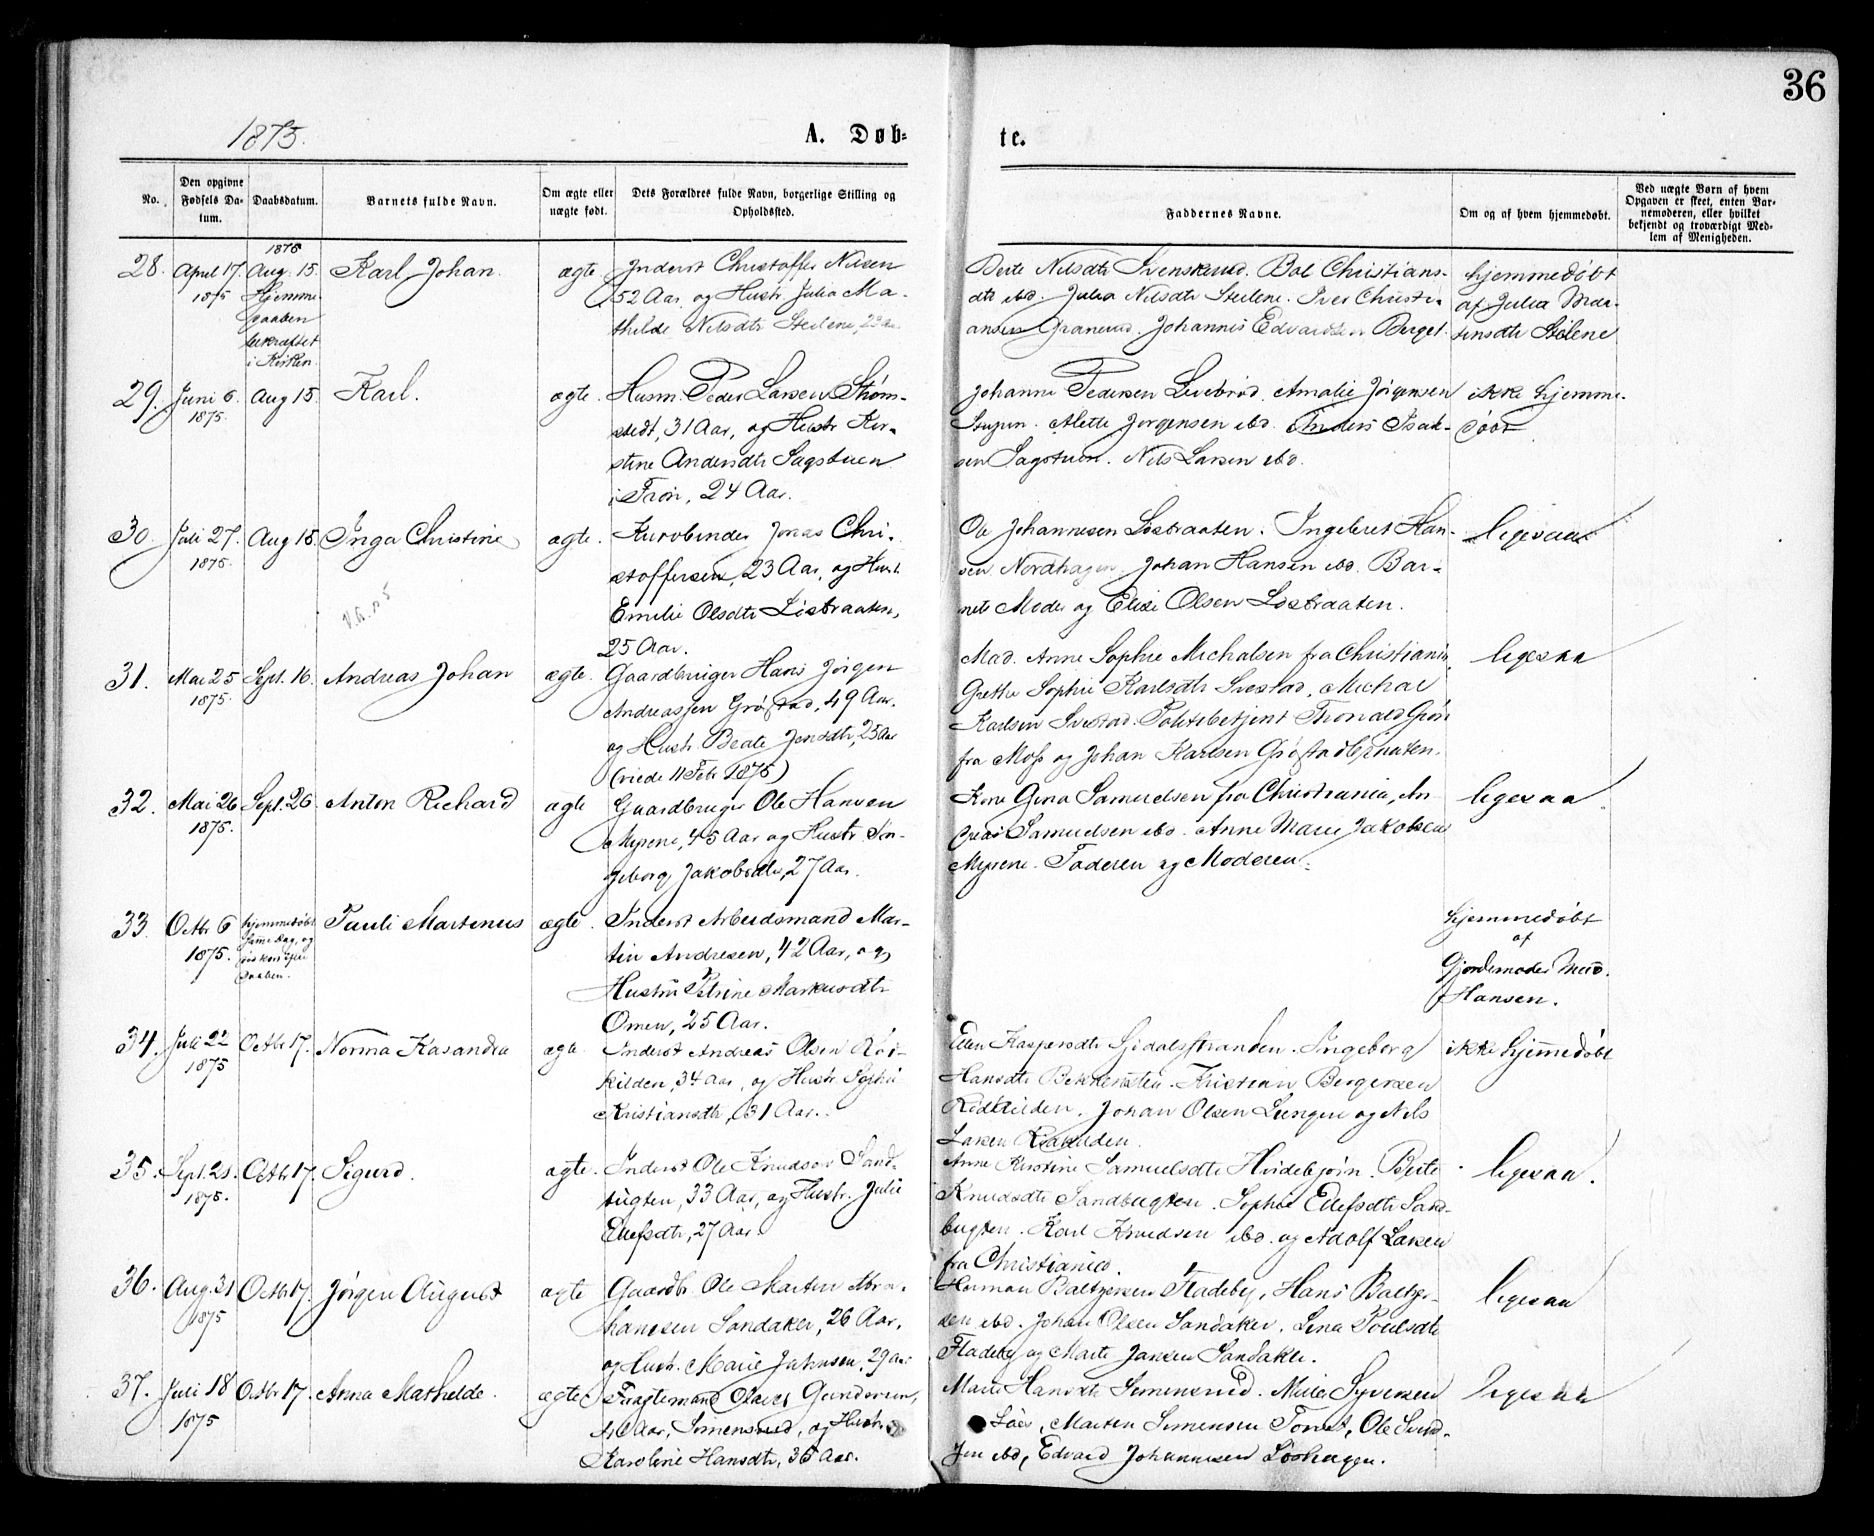 36
1875.
A. Døb-
te.
No.
Den opgivne
Fødsels Da-
tum.
Daabsdatum.
Barnets fulde Navn.
Om ægte eller
uægte født.
Dets Forældres fulde Navn, borgerlige Stilling og
Opholdssted.
Faddernes Navne.
Om og af hvem hjemmedøbt.
Ved uægte Børn af hvem
Opgaven er skeet, enten Bar-
nemoderen, eller hvilket
bekjendt og troværdigt Med-
lem af Menigheden.
28.
April 17.
1875
1875
Aug. 15.
Hjemme
daaben
bekræftet
i Kirken
Karl Johan
ægte.
Inderst Christoffer Nilsen
52 Aar, og Hustr. Julia Ma-
thilde Nilsdtr Steilene, 23 Aar
Berte Nilsdtr Svenskerud. Bol Christians-
dtr ibd. Julia Nilsdtr Steilene. Iver Christi-
ansen Granerud. Johannes Edvardsen Berget.
hjemmedøbt
af Julia
29.
Juni 6.
1875.
Aug 15.
Karl.
ægte.
Husm. Peder Larsen Strøm-
stedt, 31 Aar, og Hustr Kir-
stine Andersdtr Sagstuen
i Fron, 24 Aar.
Johanne Pedersen Amalie Jørgensen
Alette Jørgensen ibd. Anders Isak-
sen Sagstuen. Nils Larsen ibd.
ikke hjemme-
døbt
30.
Juli 27.
1875.
Aug 15.
Inga Christine
V.a. n 5
ægte.
Kurvbinder Jonas Chri-
stoffersen, 23 Aar, og Hust.
Emilie Olsdtr Løsbraaten,
25 Aar.
Ole Johannesen Løsbraaten. Ingebret Han-
sen Nordhagen. Johan Hansen ibd. Bar-
nets Moder og Elise Olsen Løsbraaten.
ligesaa
31.
Mai 25
1875.
Sept. 16.
Andreas Johan
ægte.
Gaardbruger Hans Jørgen
Andreassen Grøstad, 49 Aar.
og Hustr. Beate Jensdtr, 25 Aar
(viede 11 Febr 1875)
Mad. Anne Sophie Michalsen fra Christiania,
Grethe Sophie Karlsdtr Svestad, Michael
Karlsen Svestad. Politibetjent Grøn
fra Moss og Johan Karlsen
ligesaa
32.
Mai 26
1875.
Sept. 26
Anton Richard
ægte
Gaardbruger Ole Hansen
Myrene, 45 Aar og Hustr. In-
geborg Jakobsdtr, 27 Aar.
Kone Gina Samuelsen fra Christiania, An-
dreas Samuelsen ibd. Anne Marie Jakobsen
Myrene. Faderen og Moderen.
ligesaa.
33.
Octbr 6
1875.
hjemmedøbt
samme dag, og
daaben.
Pauli Martinus
ægte.
Inderst Arbeidsmand Mar-
tin Andresen, 42 Aar, og
Hustru Petrine Markusdtr
Omen, 25 Aar.
hjemmedøbt
af
Gjordemoder Mad.
Hansen.
34.
Juli 22
1875
Octbr 17.
Norma Kasandra
ægte.
Inderst Andreas Olsen Rød-
kilden, 34 Aar, og Hustr Sophie
Kristiansdtr, 31 Aar.
Elen Kaspersdtr Ingeborg
Hansdtr Kristian Bergersen
Rødkilden. Johan Olsen og Nils
Larsen
ikke hjemmedøbt
35.
Sept. 21.
1875.
Octbr 17.
Sigurd.
ægte.
Inderst Ole Knudsen Sand-
bugten, 33 Aar, og Hustr. Julie
Elefsdtr, 27 Aar.
Anne Kirstine Samuelsdtr Hvidebjørn. Berte
Knudsdtr Sandbugten. Sophie Elefsdtr Sand-
bugten. Karl Knudsen ibd. og Adolf Larsen
fra Christiania.
ligesaa.
36.
Aug. 31
1875
Octbr 17.
Jørgen August
ægte
Gaardbr. Ole Martin Abra-
hamsen Sandaker, 26 Aar,
og Hustr. Marie Jahnsen, 29 Aar
Herman Baltzersen Fladeby, Hans Baltzer-
sen ibd. Johan Olsen Sandaker. Lina Poulsdtr
Fladeby og Marte Jansen Sandaker.
ligesaa
37.
Juli 18
1875
Octbr 17.
Anna Mathilde.
ægte
Fragtemand Olaves Gundersen,
Aar, Simensrud, og Hustr.
Karoline Hansdtr, 36 Aar.
Marie Hansdtr Simensrud. Milla Syversen
Morten Simensen Tomt, Ole Svend-
sen ibd, Edvard Johannesen Løshagen.
ligesaa